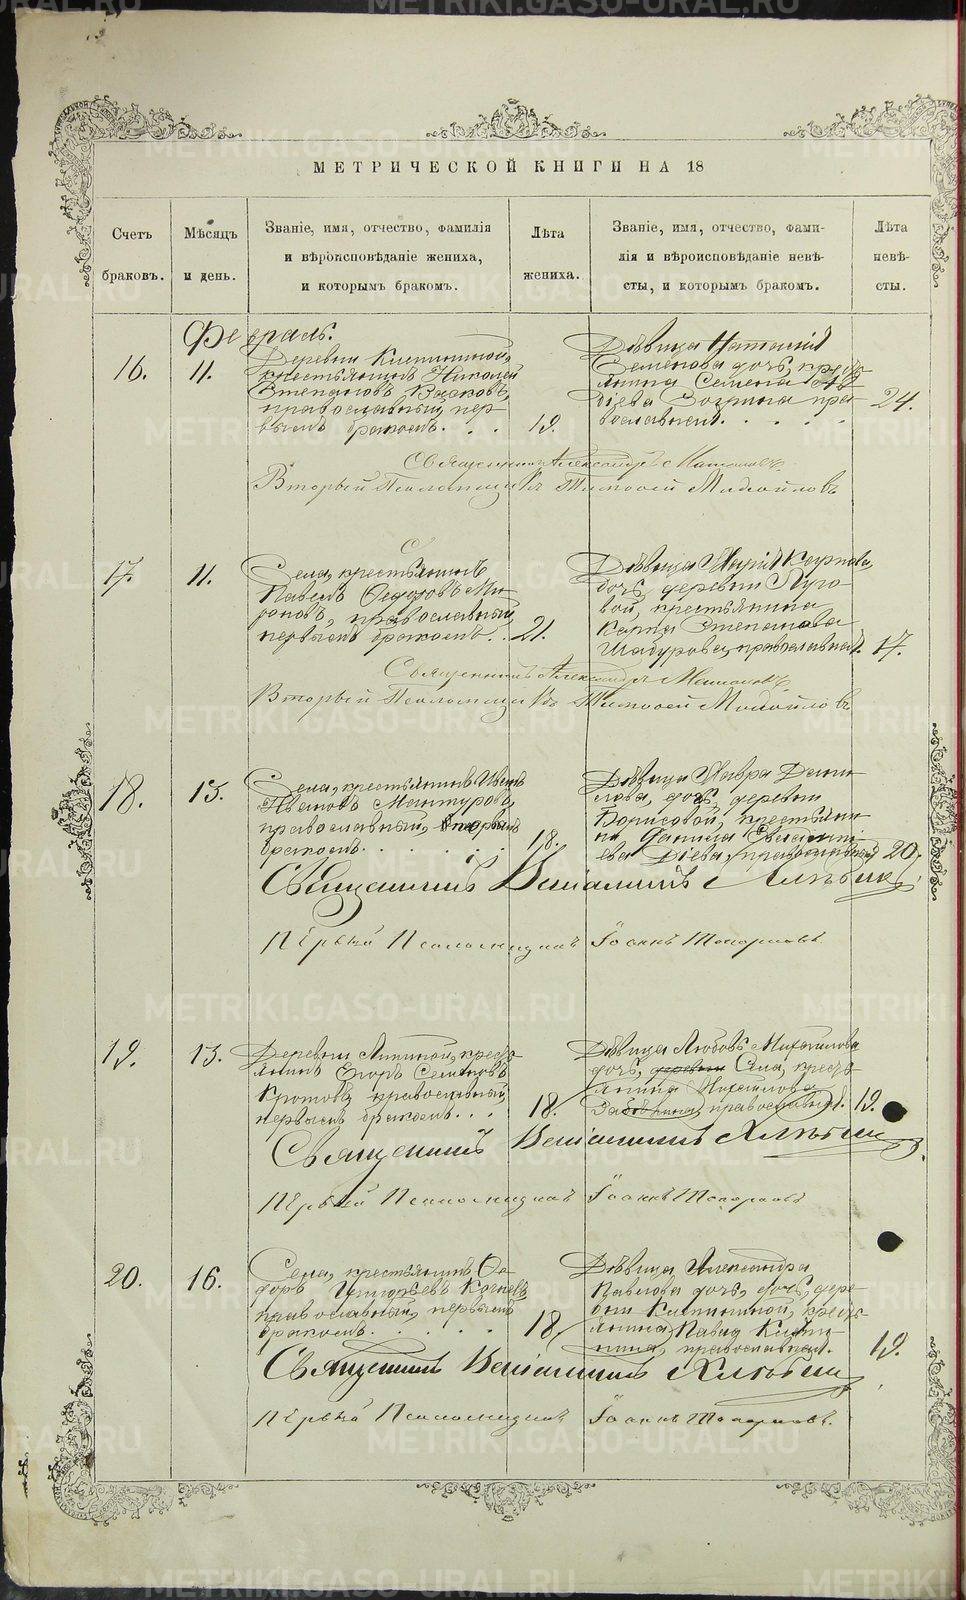 МЕТРИЧЕСКОЙ КНИГИ НА 18
Счетъ
браковъ.
Мѣсяцъ
и день.
Званіе, имя, отчество, фамилія
и вѣроисповѣданіе жениха,
и которымъ бракомъ.
Лѣта
жениха.
Званіе, имя, отчество, фами-
лія и вѣроисповѣданіе невѣ-
сты, и которымъ бракомъ.
Лѣта
невѣ-
сты.
Февраль.
16.
11.
Деревни
крестьянинъ Николай
Степановъ
православный, пер-
вымъ бракомъ.
19.
Дѣвица
Семенова дочь, кресть-
янина Семена
пра-
вославнымъ.
24.
Священникъ Александръ
Вторый Псаломщикъ Тимоѳей Михайловъ
17.
11.
Села, крестьянинъ
Павелъ Ѳедоровъ Ми-
роновъ, православный,
первымъ бракомъ.
21.
Дѣвица Марія Карпова
дочь, деревни Луго-
вой, крестьянина
Карпа Степанова
Шабурова, православнаяъ.
17.
Священникъ Александръ
Вторый Псаломщикъ Тимоѳей Михайловъ
18.
15.
Села, крестьянинъ Иванъ
Ивановъ Мантуровъ,
православный, первымъ
бракомъ.
18.
Дѣвица Мавра Дани-
лова, дочь, деревни
Борисовой, крестьяни-
на Данила
ева Діева, православный
20.
Священникъ Веніаминъ Хлѣбинъ
Первый Псаломщикъ Іоаннъ Топорковъ
19.
15.
Деревни Ляпиной, кресть-
янинъ Егоръ Семеновъ
Кротовъ, православный,
первымъ бракомъ.
18.
Дѣвица Любовь Михайлова
дочь, деревни Села, кресть-
янина Михайлова
православный.
19.
Священникъ Веніаминъ Хлѣбинъ
Первый Псаломщикъ Іоаннъ Топорковъ
20.
16.
Села, крестьянинъ Ѳе-
доръ Григорьевъ
православный, первымъ
бракомъ.
18.
Дѣвица Александра
Павлова дочь, дочь, дере-
вни Кипиной, кресть-
янина Павла
православная.
19.
Священникъ Веніаминъ Хлѣбинъ
Первый Псаломщикъ Іоаннъ Топорковъ.
METRIKI.GASO-URAL.RU